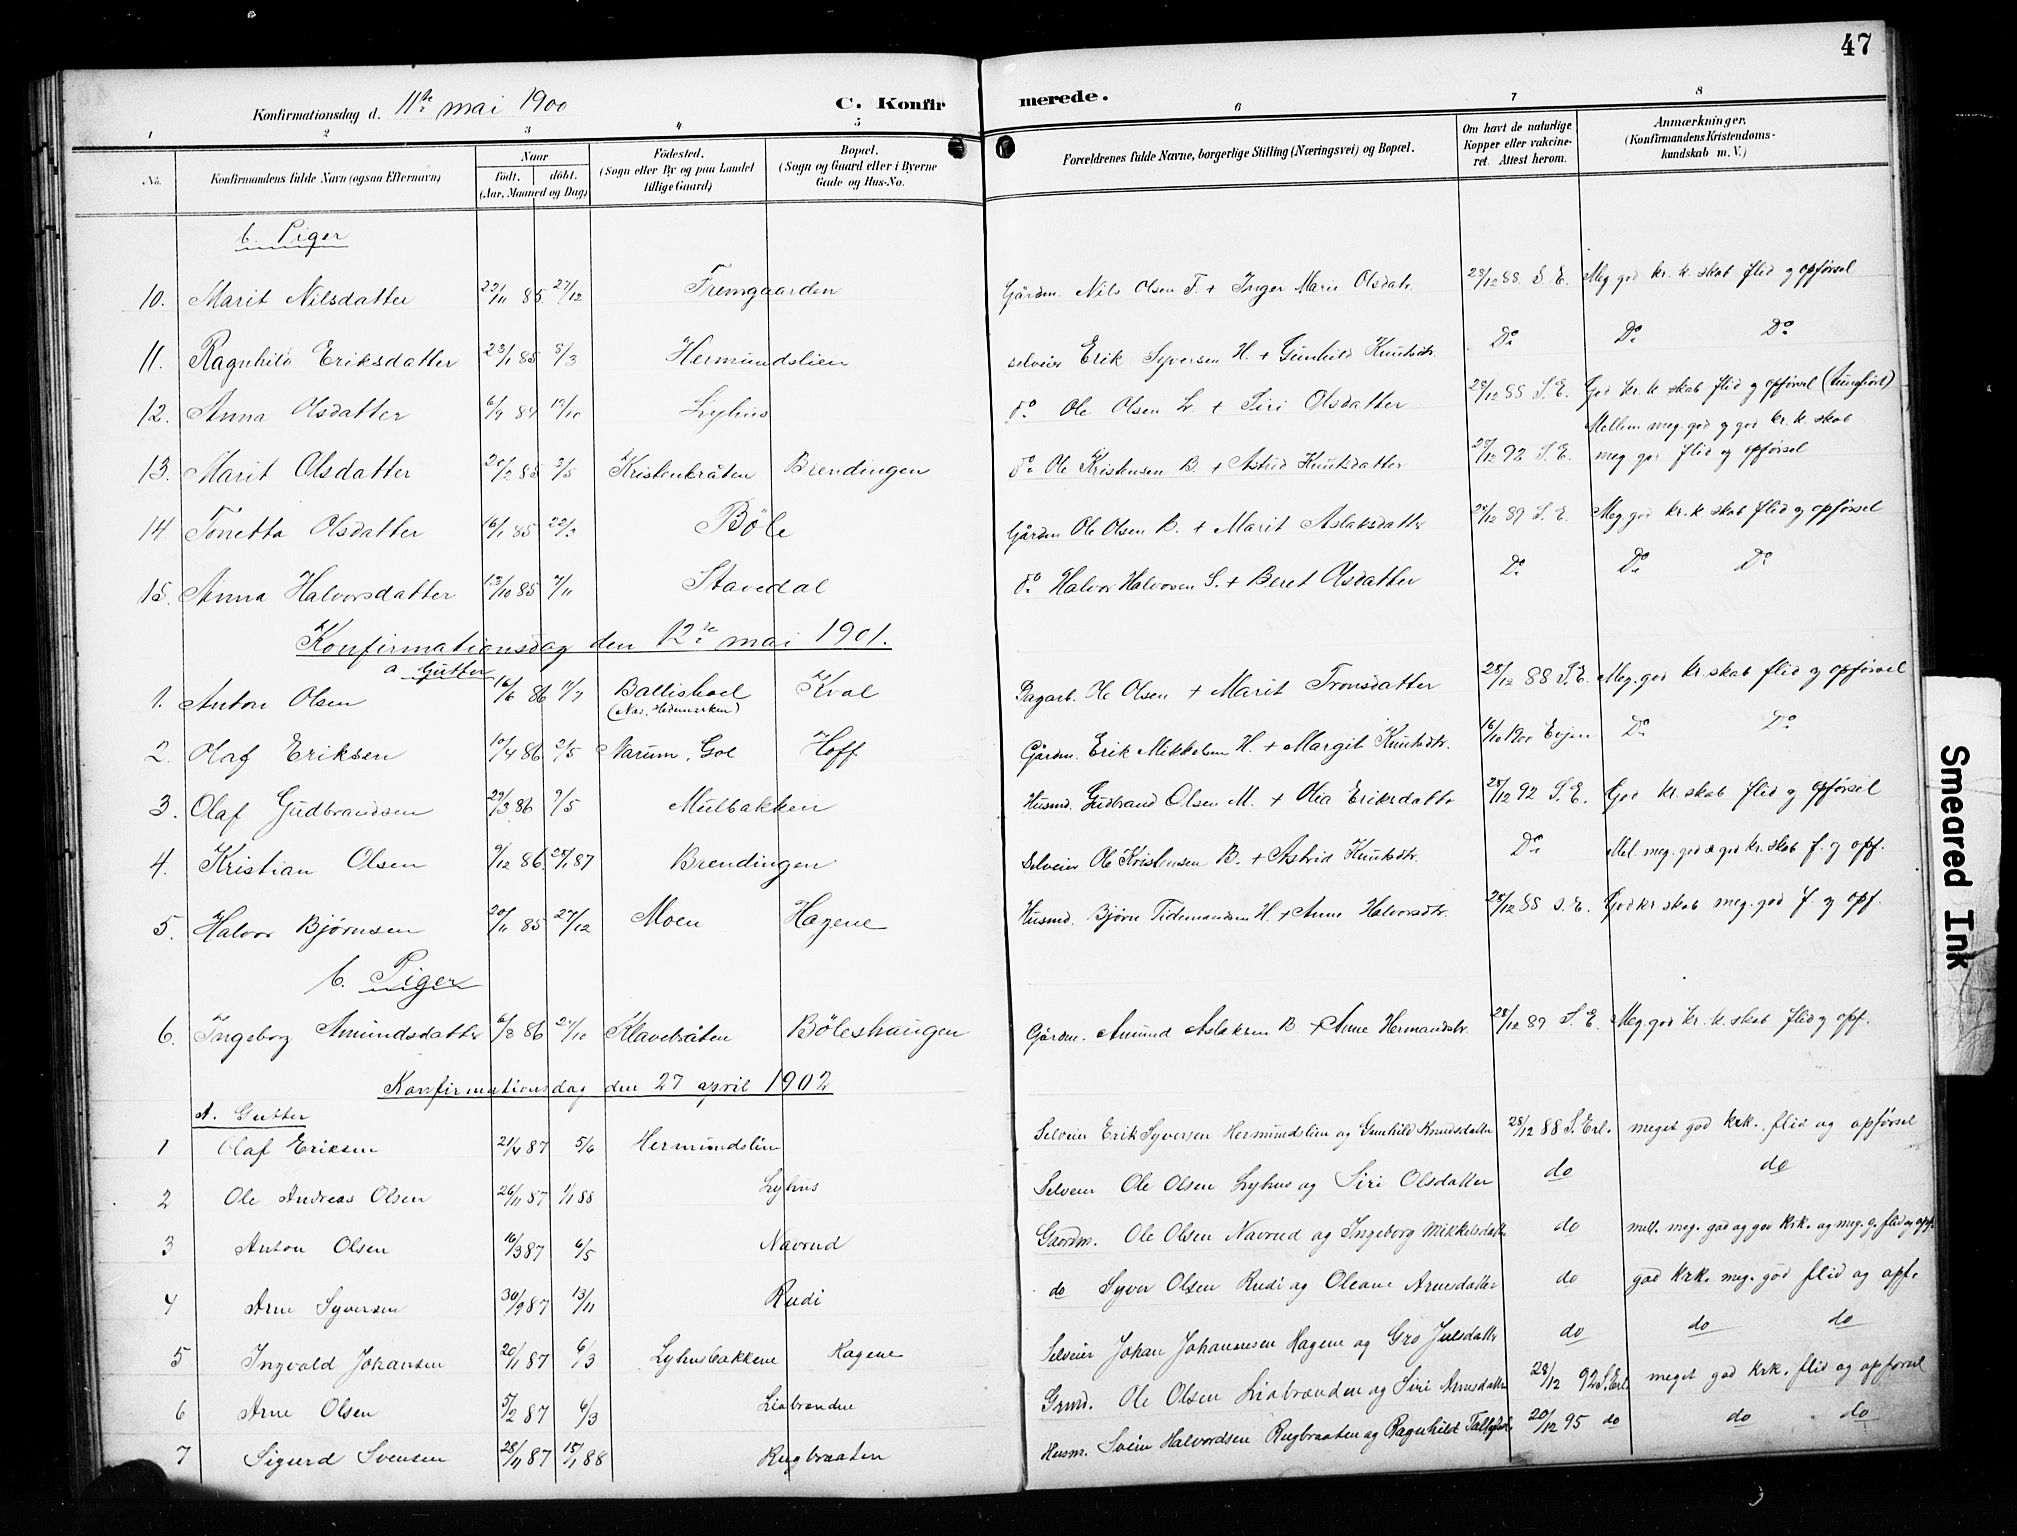 47
Konfirmationsdag d. 11te mai 1900 C. Konfirmerede.
1 2 3 4 5 6 7 8
No. Konfirmandens fulde Navn (ogsaa Efternavn) Naar Født. døbt. (Aar, Maaned og Dag) Fødested. (Sogn eller By og paa Landet tillige Gaard) Bopæl. (Sogn og Gaard eller i Byerne Gade og Hus-No. Forældrenes fulde Navne, borgerlige Stilling (Næringsvei) og Bopæl. Om havt de naturlige Kopper eller vakcineret. Attest herom. Anmærkninger. (Konfirmandens Kristendomskundskab m. V.)
b. Piger
10. Marit Nilsdatter 22/11 85 27/12 Fremgaarden Gårdm. Nils Olsen F. + Inger Marie Olsdatr. 28/12 88 S. E. Meg. god kr. k. skab flid og opførsel
11. Ragnhild Eriksdatter 23/1 85 8/3 Hermundslien selveier Erik Syversen H. + Gunhild Knutsdtr. Do Do Do
12. Anna Olsdatter 6/9 84 Lyhus do Ole Olsen L. + Siri Olsdatter 28/12 88 S. E. God kr. k. skab flid og opførsel (tunghørt)
13. Marit Olsdatter 20/2 85 3/5 Kristenbråten Brendingen do Ole Kristensen B. + Astrid Knutsdatter 28/12 92 S. E. Mellem meg. god og god kr. k. skab meg god flid og opførsel
14. Tonetta Olsdatter 16/1 85 22/3 Bøle Gårdm Ole Olsen B. + Marit Aslaksdatr 28/12 89 S. E. Meg. god kr. k. skab flid og opførsel
15. Anna Halvorsdatter 13/10 85 Stavedal do Halvor Halvorsen S. + Beret Olsdatter Do Do Do
Konfirmationsdag den 12te mai 1901.
a Gutter
1. Anton Olsen 16/6 86 11/7 Ballishoel (Nes, Hedemarken) Kval Dagarb. Ole Olsen + Marit Tronsdatter 28/12 88 S. E. Meg. god kr. skab flid og opførsel
2. Olaf Eriksen 10/4 86 2/5 Narum, Gol Hoff Gårdm. Erik Mikkelsen H. + Margit Knutsdtr. 16/10 1900 Evjen Do Do
3. Olaf Gudbrandsen 29/3 86 9/5 Mulbakken Husmd. Gudbrand Olsen M. + Olia Eriksdattr 28/12 92 S. E. God kr. skab flid og opførsel
4. Kristian Olsen 9/12 86. 25/1 87 Brendingen Selveier Ole Kristensen B. + Astrid Knutsdtr. Do Mel. meg. god og god kr. skab f. og opf.
5. Halvor Bjørnsen 20/11 85 27/12 Moen Hagene Husmd. Bjørn Tidemandsen H + Anne Halvorsdtr. 28/12 88 S. E. God kr skab meg. god f. og opf.
b. Piger
6. Ingeborg Amundsdatter 6/8 86 Klavebråten Bøleshaugen Gårdm. Amund Aslaksen B. + Anne Hermandsdtr. 28/12 89 S. E. Meg. god kr. k. skab flid og opf.
Konfirmationsdag den 27 april 1902
A. Gutter
1 Olaf Eriksen 21/4 87 5/6 Hermundslin Selveier Erik Syversen Hermundslien og Gunhild Knudsdatter 28/12 88 S. Erl. meget god krk. flid og opførsel
2 Ole Andreas Olsen 26/11 87 1/1 88 Lyhus Selveier Ole Olsen Lyhus og Siri Olsdatter do do
3 Anton Olsen 16/3 87 6/5 Navrud Gaardm. Ole Olsen Navrud og Ingeborg Mikkelsdatter do mell. meg. god og god krk. og meg. g. flid og opf.
4 Arne Syversen 30/9 87 13/11 Rudi do Syver Olsen Rudi og Oleane Arnesdatter do god krk. meg. god flid og opf.
5 Ingvald Johansen 20/1 87 6/3 Lyhusbakkene Hagene Selveier Johan Johannesen Hagene og Gro Julsdattr do do do
6 Arne Olsen 5/2 87 6/3 Liabranden Grmd. Ole Olsen Liabranden og Siri Arnesdatter 28/12 92 S. Erl. meget god krk. flid og opførsel
7 Sigurd Svensen 28/11 87 15/1 88 Rugbraaten Husm. Svein Halvordsen Rugbraaten og Ragnhild 20/12 95 do do do
Smeared Ink